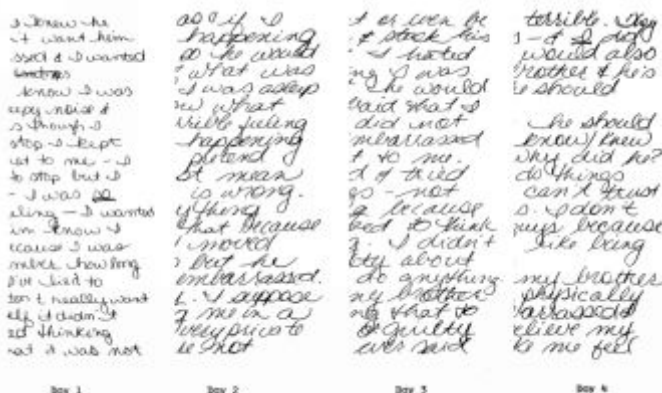 I knew he
't want him
ssed & I wanted
know I was
eepy noise &
s though I
stop I kept
ust to me - I
to stop but I
- I was so
eling - I wanted
im know I
ecause I was
mber how long
I've lied to
don't really want
elf it didn't
ect thinking
hat it was not
Day 1
as if I
happening
so he would
what was
I was asleep
w what
rrible feeling
happening
pretend
st mean
is wrong.
ything
that because
I moved
but he
embarrassed.
I suppose
g me in a
very private
se not
Day 2
t or even be
& stick his
I hated
ng I was
he would
said that I
did not
mbarrassed
t to me.
d & tried
gs - not
g because
ted to think
g. I didn't
lty about
do anything
my brother
ng that to
so guilty
ever said
Day 3
terrible. They
I - & I did
would also
brother & he's
e should
he should
know/knew
why did he?
do things
can't trust
s. I don't
guys because
like being
my brother
physically
barrassed &
elieve my
ke me feel
Day 4